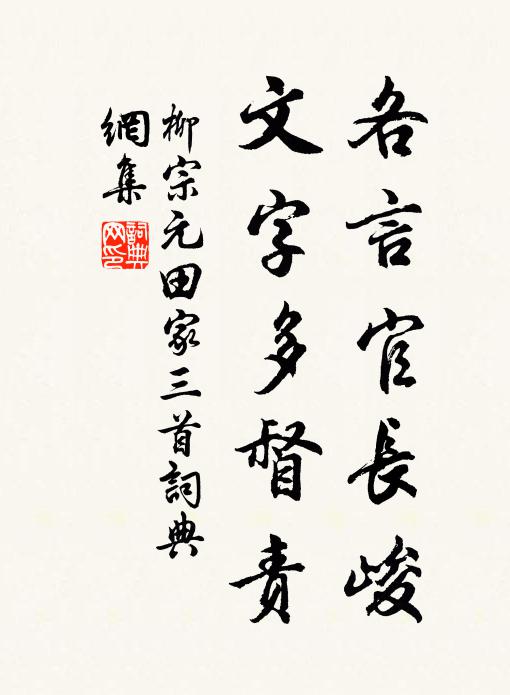 各言官長峻
文字多督責
柳宗元田家三首詞典
網集
詞典
网印